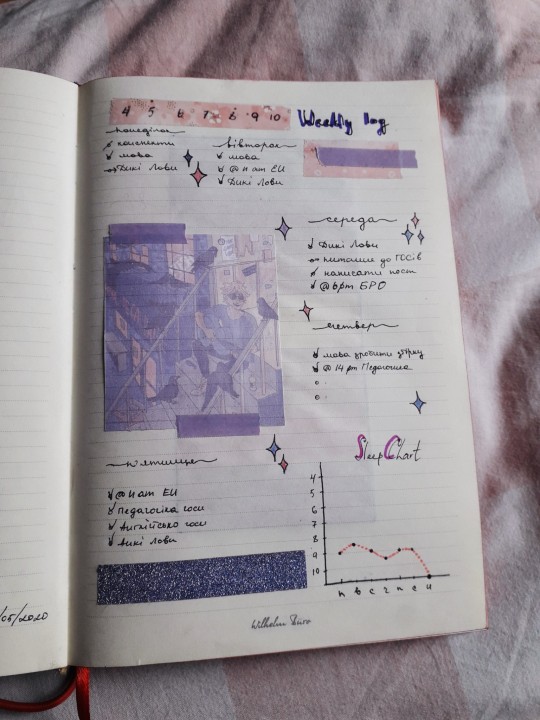 4 5 6 7 8 9 10 Weekly log
понеділок
конспекти
мова
Дикі Лови
вівторок
мова
@ 11 am ЕЦ
Дикі Лови
середа
Дикі Лови
питання до ГОСів
написати пост
@ 6 pm БРО
четвер
мова зробити збірку
@ 14 pm Педагогіка
п'ятниця
@ 11 am ЕЦ
Педагогіка госи
Англійська госи
Дикі Лови
Sleep Chart
4
5
6
7
8
9
10
п в с ч п с н
Wilhelm Büro
/05/2020